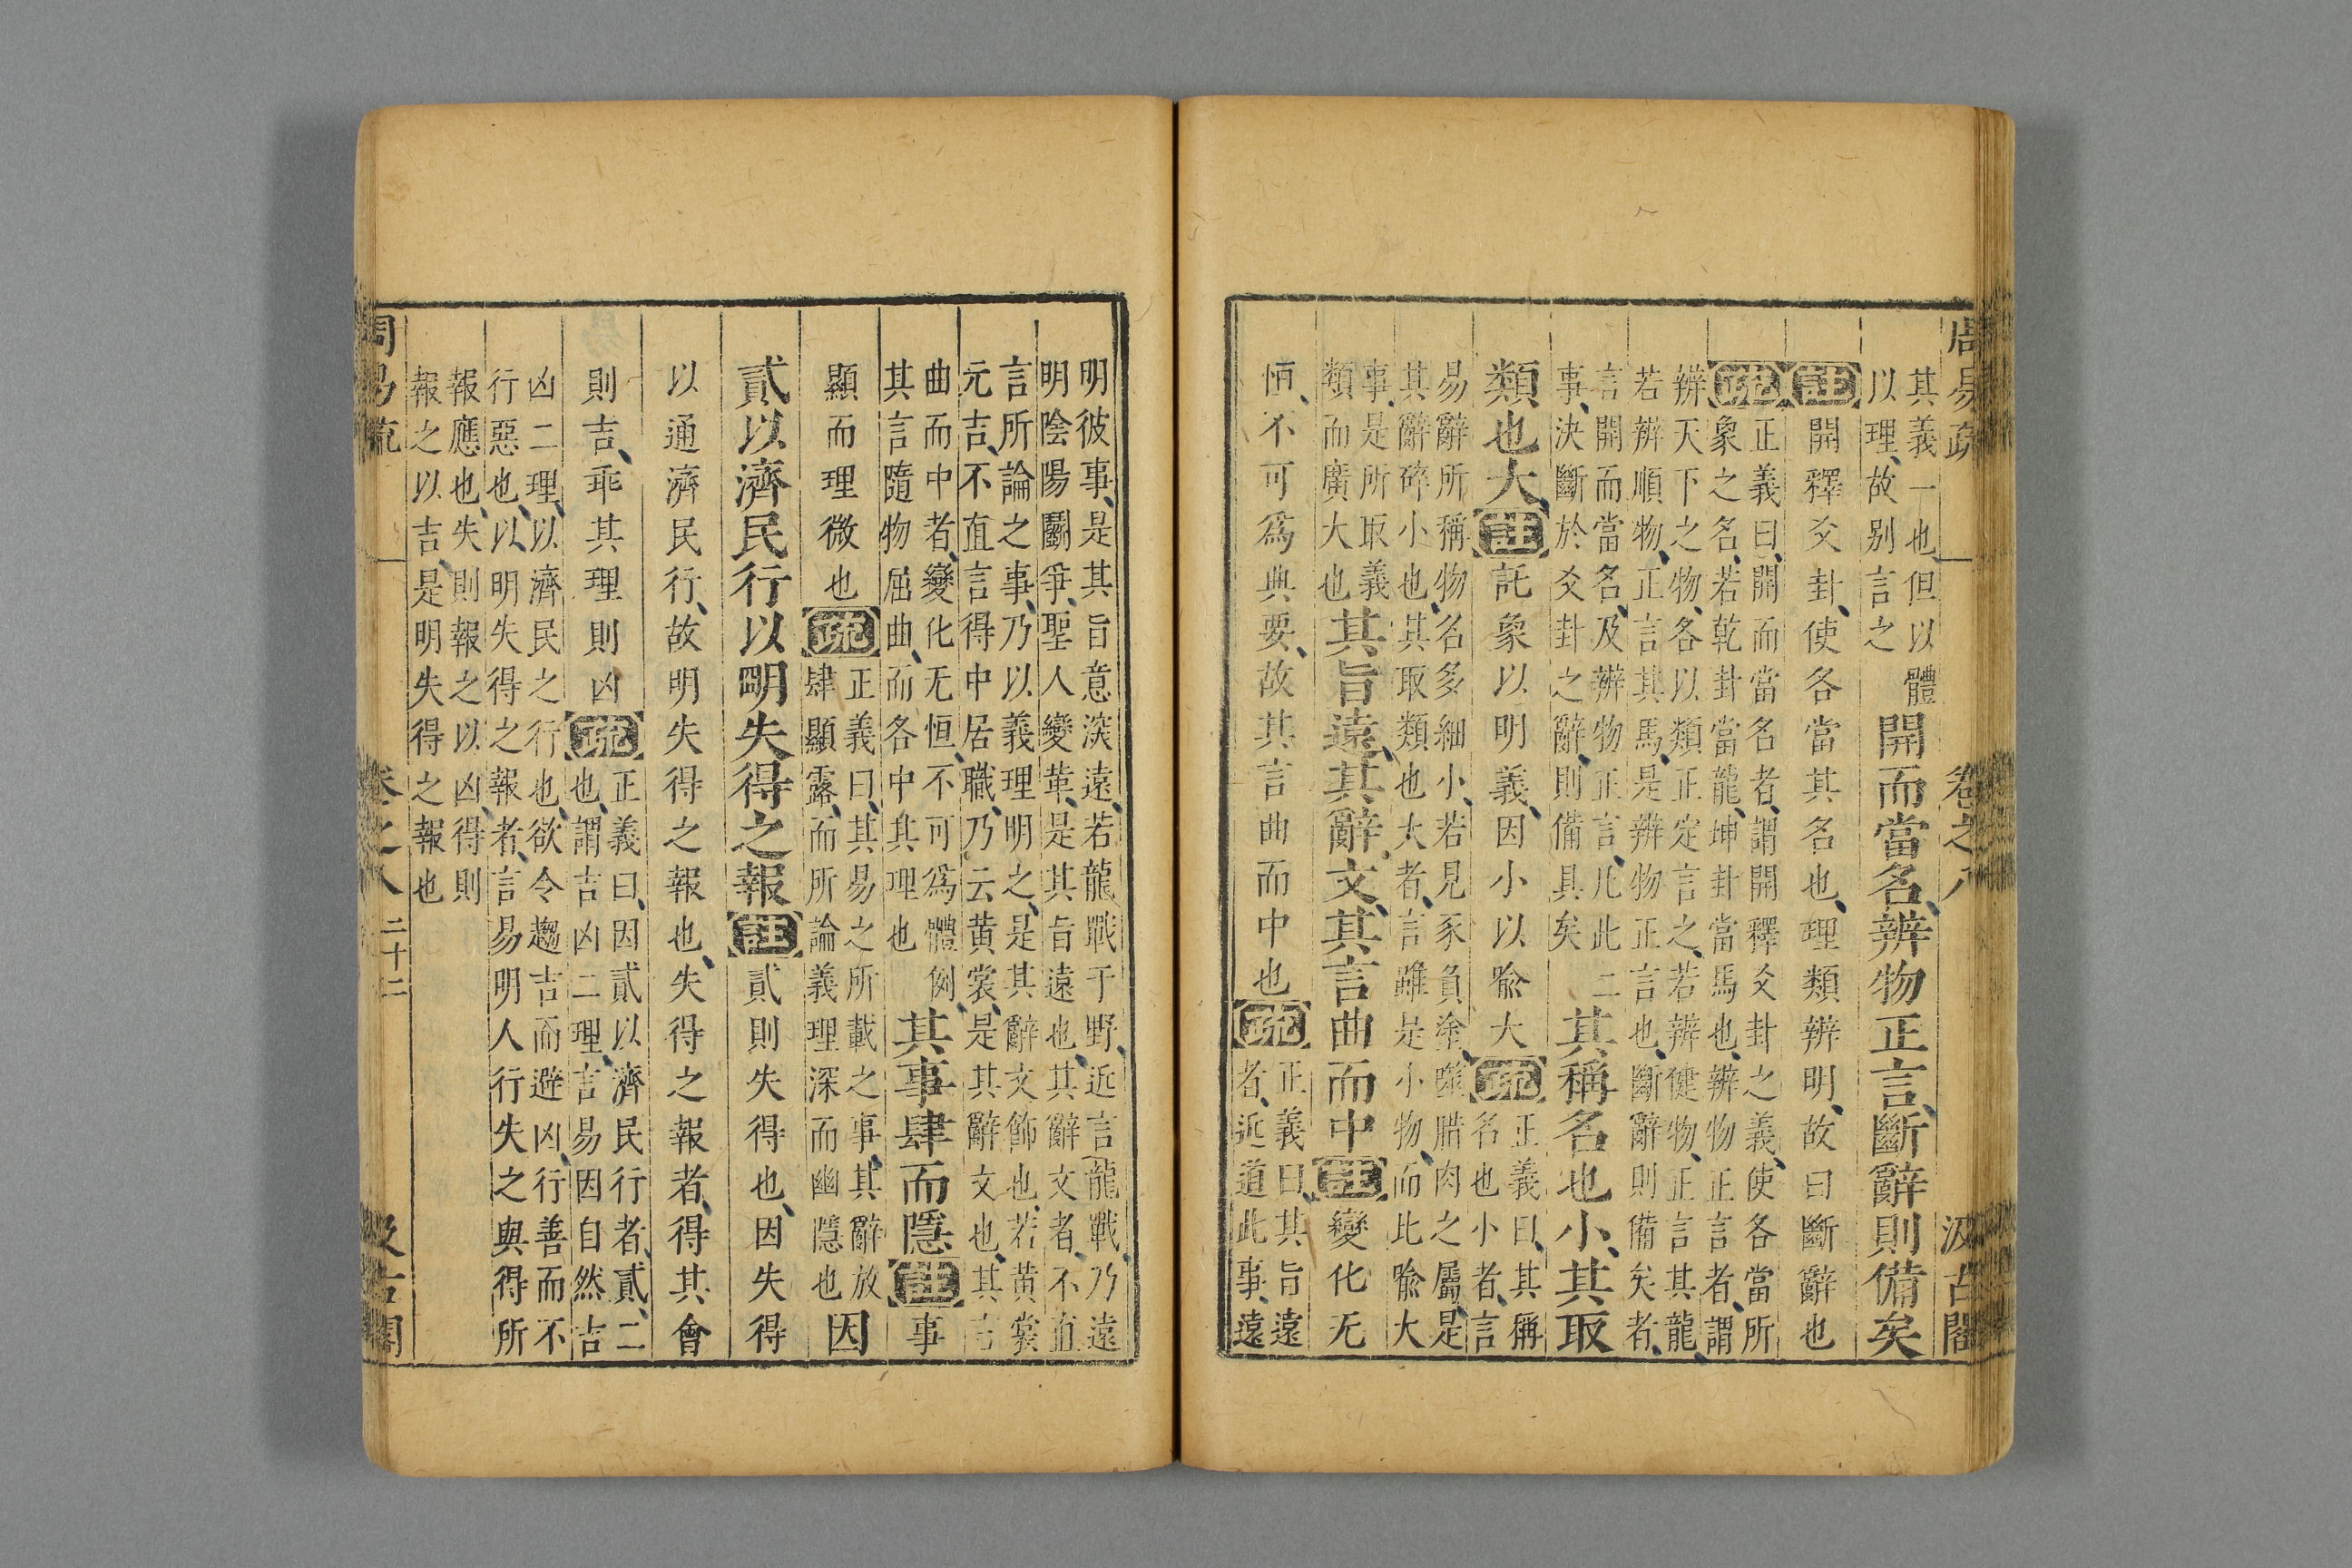 周易疏　卷之八　汲古閣
其義一也但以體
以理故别言之
開而當名辨物正言斷辭則備矣
註開釋爻卦使各當其名也理類辨明故曰斷辭也
疏正義曰開而當名者謂開釋爻卦之義使各當所
象之名若乾卦當龍坤卦當馬也辨物正言者謂
辨天下之物各以類正定言之若辨健物正言其龍
若辨順物正言其馬是辨物正言也斷辭則備矣者
言開而當名及辨物正言凡此二
事決斷於爻卦之辭則備具矣
其稱名也小其取
類也大註託象以明義因小以喩大疏正義曰其稱
名也小者言
易辭所稱物名多細小若見豕負塗噬腊肉之屬是
其辭碎小也其取類也大者言雖是小物而比喩大
事是所取義
類而廣大也
其旨遠其辭文其言曲而中註變化无
恒不可爲典要故其言曲而中也疏正義曰其旨遠
者近道此事遠
明彼事是其旨意深遠若龍戰于野近言龍戰乃遠
明陰陽鬭爭聖人變革是其旨遠也其辭文者不直
言所論之事乃以義理明之是其辭文飾也若黄裳
元吉不直言得中居職乃云黄裳是其辭文也其言
曲而中者變化无恒不可爲體例
其言隨物屈曲而各中其理也
其事肆而隱註事
顯而理微也疏正義曰其易之所載之事其辭放
肆顯露而所論義理深而幽隱也
因
貳以濟民行以明失得之報註貳則失得也因失得
以通濟民行故明失得之報也失得之報者得其會
則吉乖其理則凶疏正義曰因貳以濟民行者貳二
也謂吉凶二理言易因自然吉
凶二理以濟民之行也欲令趨吉而避凶行善而不
行惡也以明失得之報者言易明人行失之與得所
報應也失則報之以凶得則
報之以吉是明失得之報也
周易疏　卷之八　二十二　汲古閣